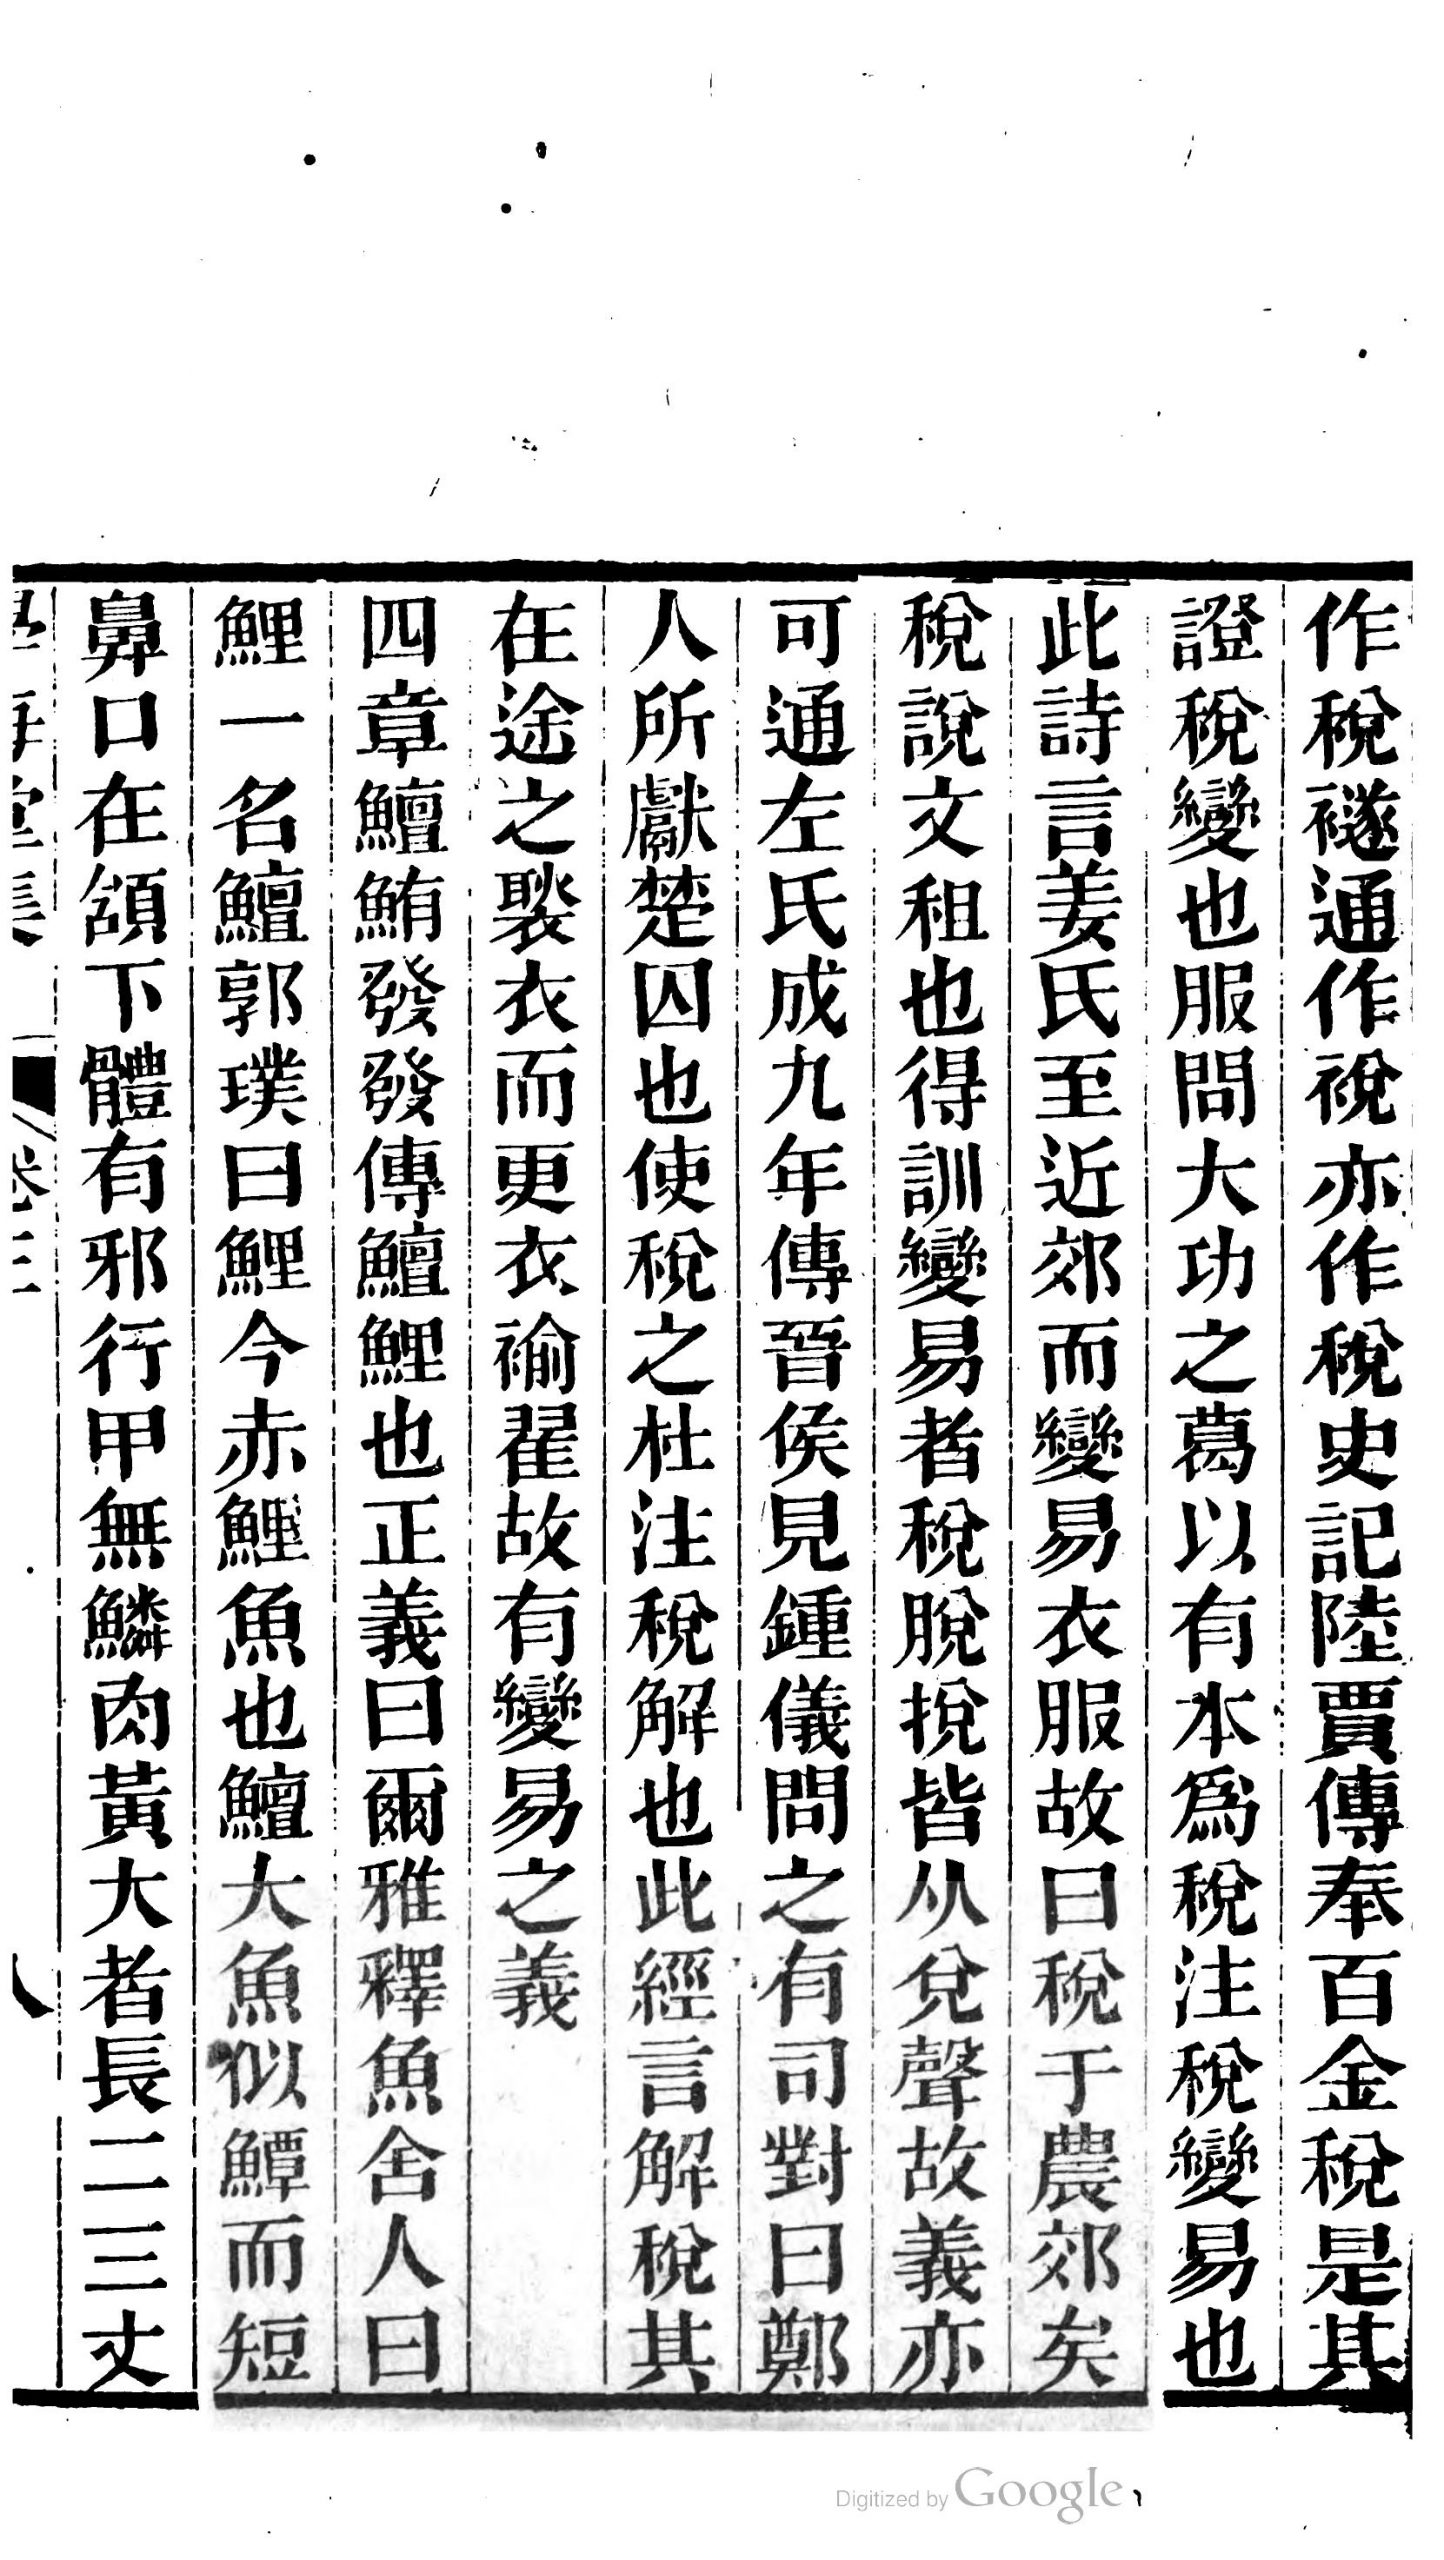 作稅襚通作裞亦作稅史記陸賈傳奉百金稅是其
證稅變也服問大功之葛以有本爲稅注稅變易也
此詩言姜氏至近郊而變易衣服故曰稅于農郊矣
稅說文租也得訓變易者稅脫挩皆从兌聲故義亦
可通左氏成九年傳晉侯見鍾儀問之有司對曰鄭
人所獻楚囚也使稅之杜注稅解也此經言解稅其
在途之褧衣而更衣褕翟故有變易之義
四章鱣鮪發發傳鱣鯉也正義曰爾雅釋魚舍人曰
鯉一名鱣郭璞曰鯉今赤鯉魚也鱣大魚似鱏而短
鼻口在頷下體有邪行甲無鱗肉黃大者長二三丈
學海堂集 卷三
Digitized by Google